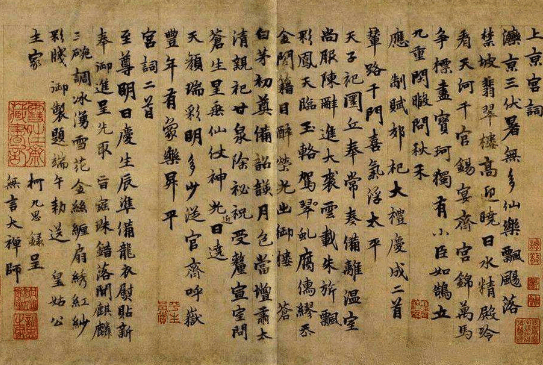 上京宮詞
灤京三伏暑無多仙樂飄颻落
禁坡翡翠樓高迎曉日水精殿冷
看天河千官錫宴齊宮錦萬馬
爭標盡寶珂獨有小臣如鵠立
九重閒暇問秋禾
應制賦郊祀大禮慶成二首
輦路千門喜氣浮太平
天子祀圜丘奉常奏備離溫室
尚服陳辭進大裘雲載朱旂飄
彩鳳天臨玉輅駕翠虬腐儒繆忝
金閨籍目醉榮光出御樓 蒼
白茅初奠備詔月色當壇肅太
清親祀甘泉除祕祝受釐宣室問
蒼生星垂仙仗神光近日遶
天顏瑞彩明多少從官齊呼嶽
豐年有象樂昇平
宮詞二首
至尊明日慶生辰準備龍衣熨貼新
奉御進呈先取 旨寔珠錯落間銀麟
三碗調冰濺雪花金絲纏扇綉紅紗
彩牋 御製題端午勅送 皇姑公
主家
柯九思錄呈
無言大禪師